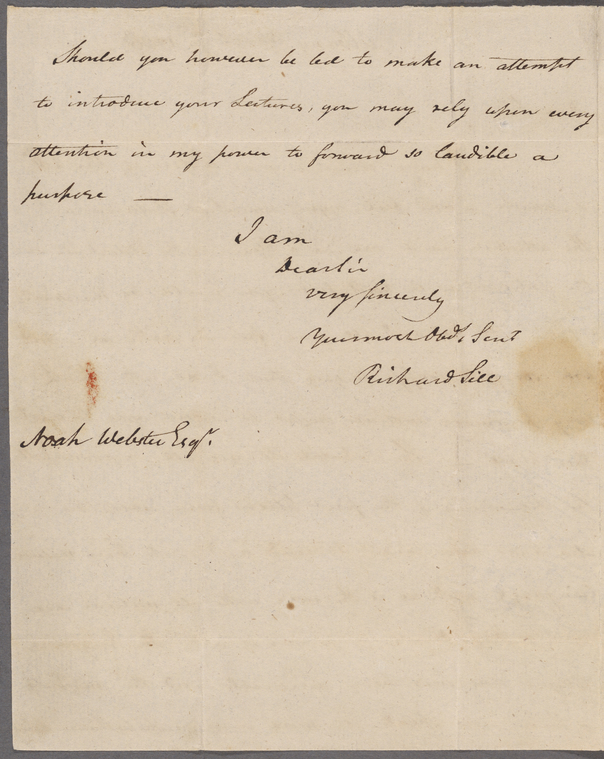 Should you however be led to make an attempt
to introduce your Lectures, you may rely upon every
attention in my power to forward so laudible a
purpose —
I am
Dear Sir
very sincerely
Your most Obdt Sert
Richard Sill
Noah Webster Esqr.